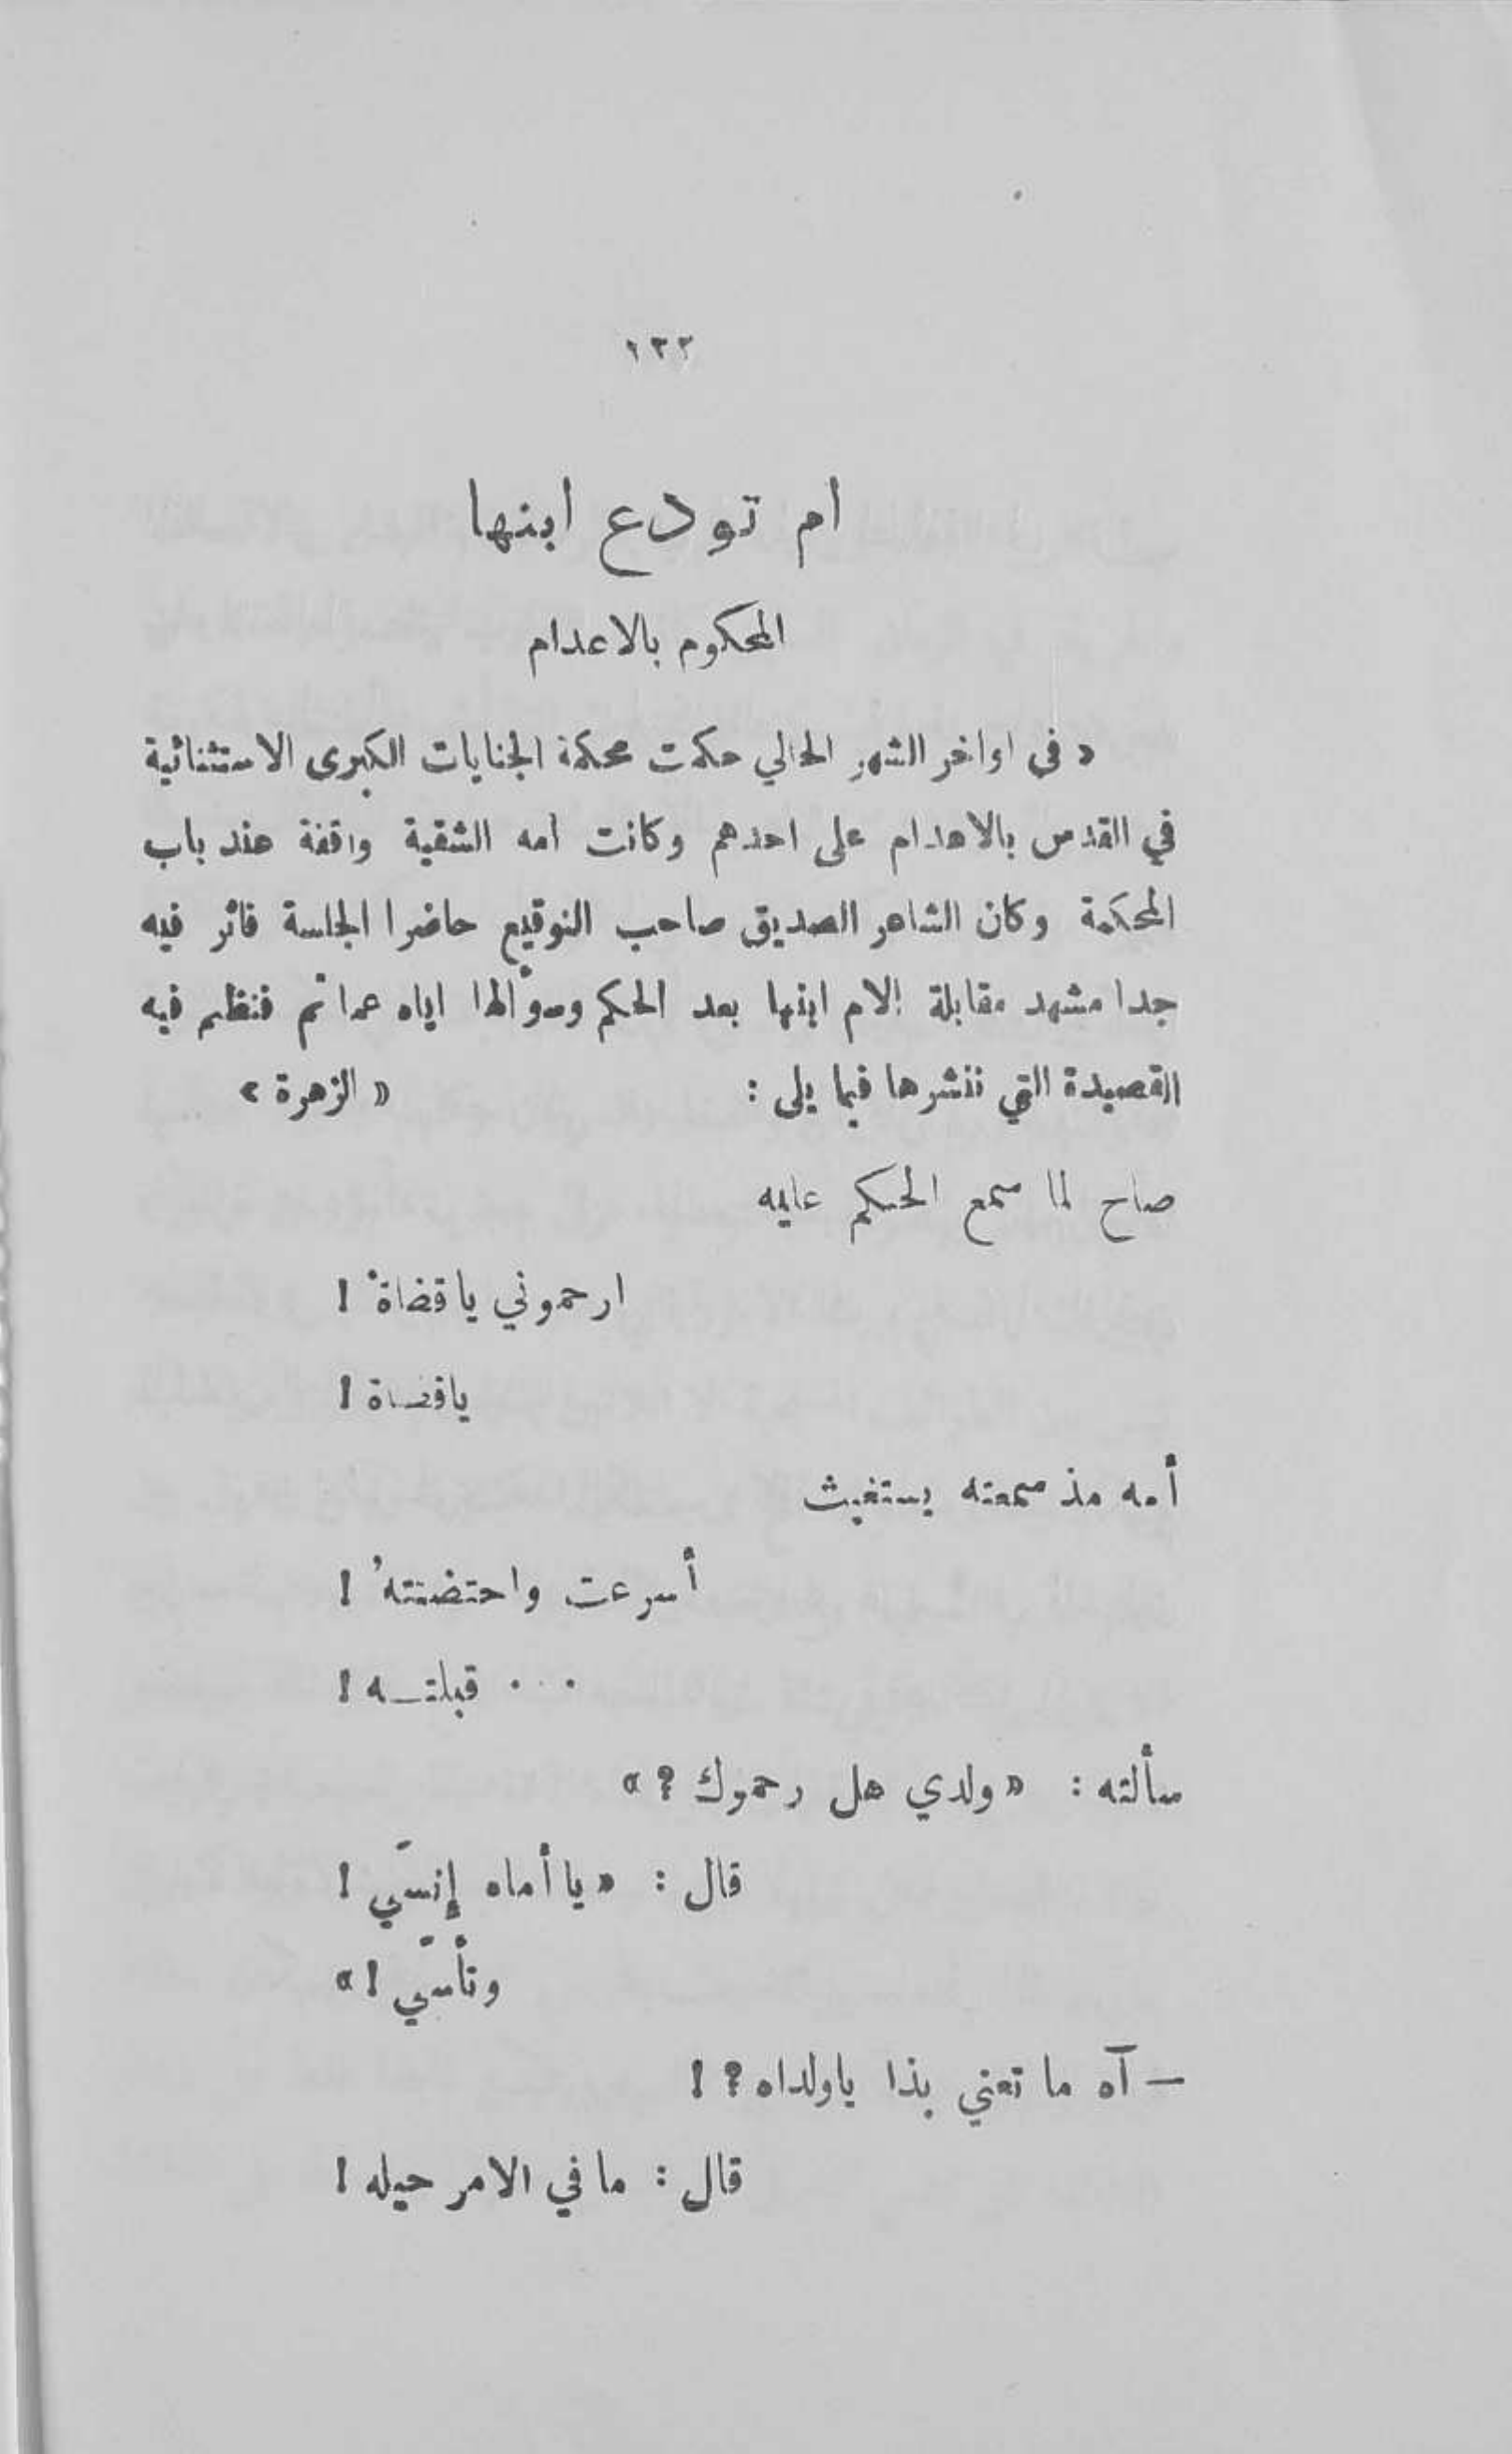 ١٣٢
ام تودع ابنها
المحكوم بالاعدام
« في اواخر الشهر الحالي حكمت محكمة الجنايات الكبرى الاستثنائية
في القدس بالاعدام على احدهم وكانت امه الشقية واقفة عند باب
المحكمة وكان الشاعر الصديق صاحب التوقيع حاضرا الجلسة فاثر فيه
جدا مشهد مقابلة الام ابنها بعد الحكم وسؤالها اياه عما تم فنظم فيه
القصيدة التي ننشرها فيما يلي : « الزهرة »
صاح لما سمع الحكم عليه
ارحموني يا قضاةْ !
يا قضاة !
أمه مذ سمعته يستغيث
أسرعت واحتضنتهُ !
... قبلتــه !
سألته : « ولدي هل رحموك ؟ »
قال : « يا أماه إنسَي !
وتأسَّي ! »
— آه ما تعني بذا ياولداه ؟ !
قال : ما في الامر حيله !